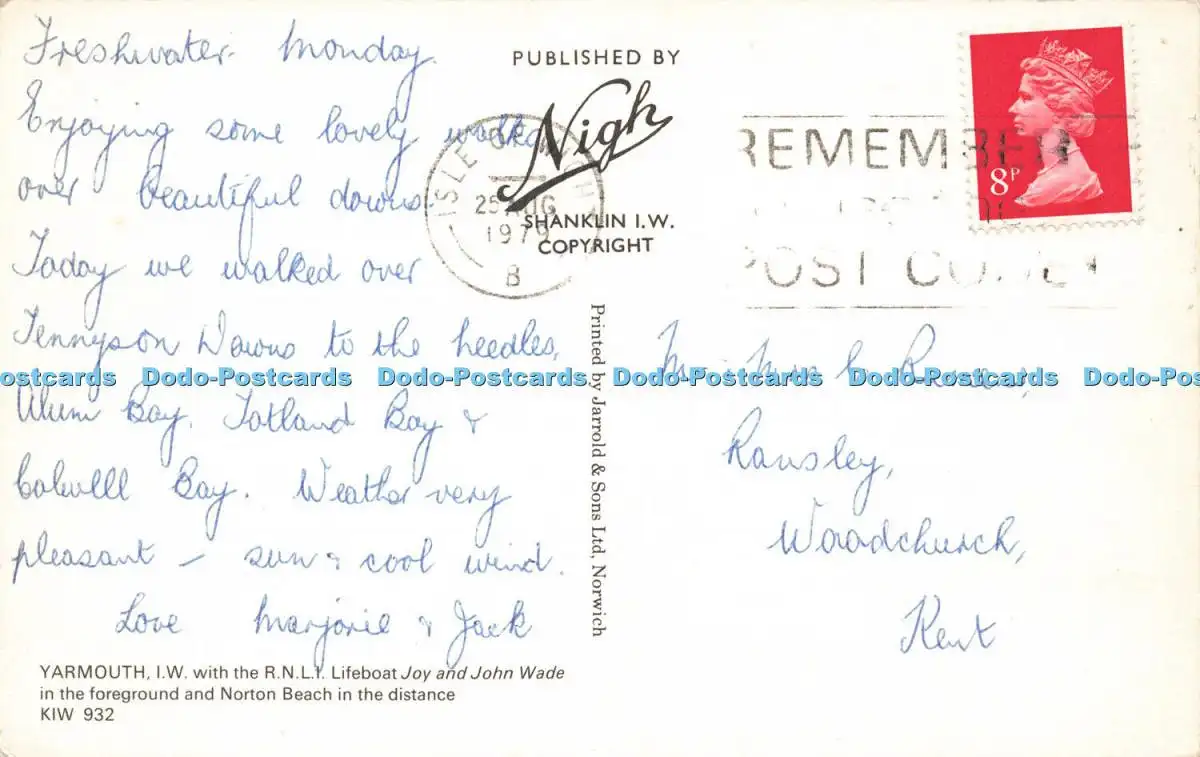 Freshwater. Monday.
Enjoying some lovely walks
over beautiful downs.
Today we walked over
Tennyson Downs to the needles,
Alum Bay, Totland Bay &
Colwell Bay. Weather very
pleasant – sun & cool wind.
Love Marjorie & Jack
YARMOUTH, I.W. with the R.N.L.I. Lifeboat Joy and John Wade
in the foreground and Norton Beach in the distance
KIW 932
PUBLISHED BY
Nigh
SHANKLIN I.W.
COPYRIGHT
ISLE OF
25 AUG
1979
B
Printed by Jarrold & Sons Ltd, Norwich
REMEMBER
POST CODE
8P
Ransley,
Woodchurch,
Kent
ostcards Dodo-Postcards Dodo-Postcards Dodo-Postcards Dodo-Postcards Dodo-Post